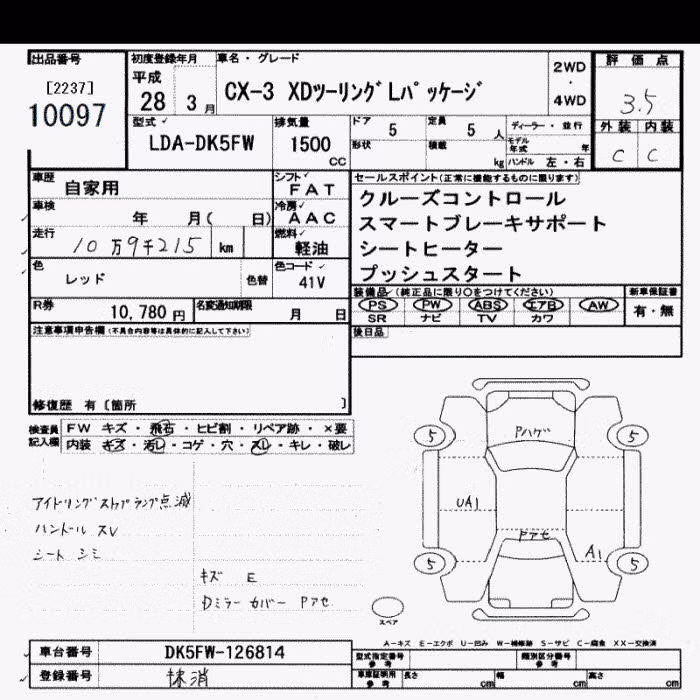 出品番号
[2237]
10097
初度登録年月
平成
28 3 月
車名・グレード
CX-3 XDツーリングLパッケージ
2WD
・
4WD
評価点
3.5
外装 内装
C C
型式
LDA-DK5FW
排気量
1500
CC
ドア 5
定員 5 人
形状
積載 kg
ディーラー・並行
モデル年式 年
ハンドル 左・右
車歴 自家用
シフト FAT
車検 年 月( 日)
冷房 AAC
走行 10万9千215 km
燃料 軽油
色 レッド 色替
色コード 41V
R券 10,780 円
名変通知期限 月 日
セールスポイント(正常に機能するものに限ります)
クルーズコントロール
スマートブレーキサポート
シートヒーター
プッシュスタート
装備品(純正品に限り○をつけてください)
新車保証書
PS PW ABS エアB AW
有・無
SR ナビ TV カワ
後日品
注意事項申告欄(不具合内容等は具体的に記入して下さい)
修復歴 有〔箇所 〕
検査員記入欄
FW キズ・飛石・ヒビ割・リペア跡・×要
内装 キズ・汚レ・コゲ・穴・スレ・キレ・破レ
アイドリングストップランプ点滅
ハンドル スレ
シート シミ
キズ E
Dミラーカバー Pアセ
5 5
Pハゲ
UA1
Pアセ
A1
5 5
スペア
A-キズ E-エクボ U-凹み W-補修跡 S-サビ C-腐食 XX-交換済
車台番号 DK5FW-126814
登録番号 抹消
型式指定番号 参考
類別区分番号 参考
車庫証明用 参考
長さ cm
幅 cm
高さ cm